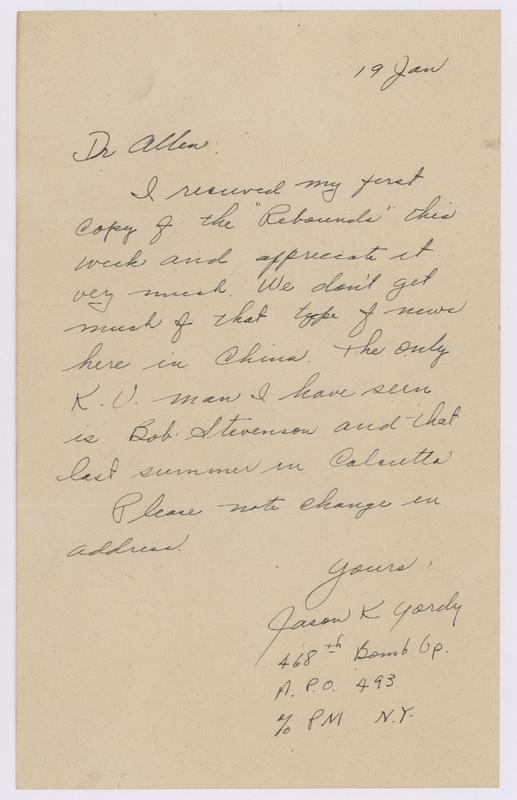 19 Jan
Dr Allen.
I received my first
copy of the "Rebounds" this
week and appreciate it
very much. We don't get
much of that type of news
here in China. The only
K. U. man I have seen
is Bob Stevenson and that
last summer in Calcutta
Please note change in
address.
Yours
Jason K Yordy
468th Bomb Gp.
A. P. O. 493
℅ PM N.Y.